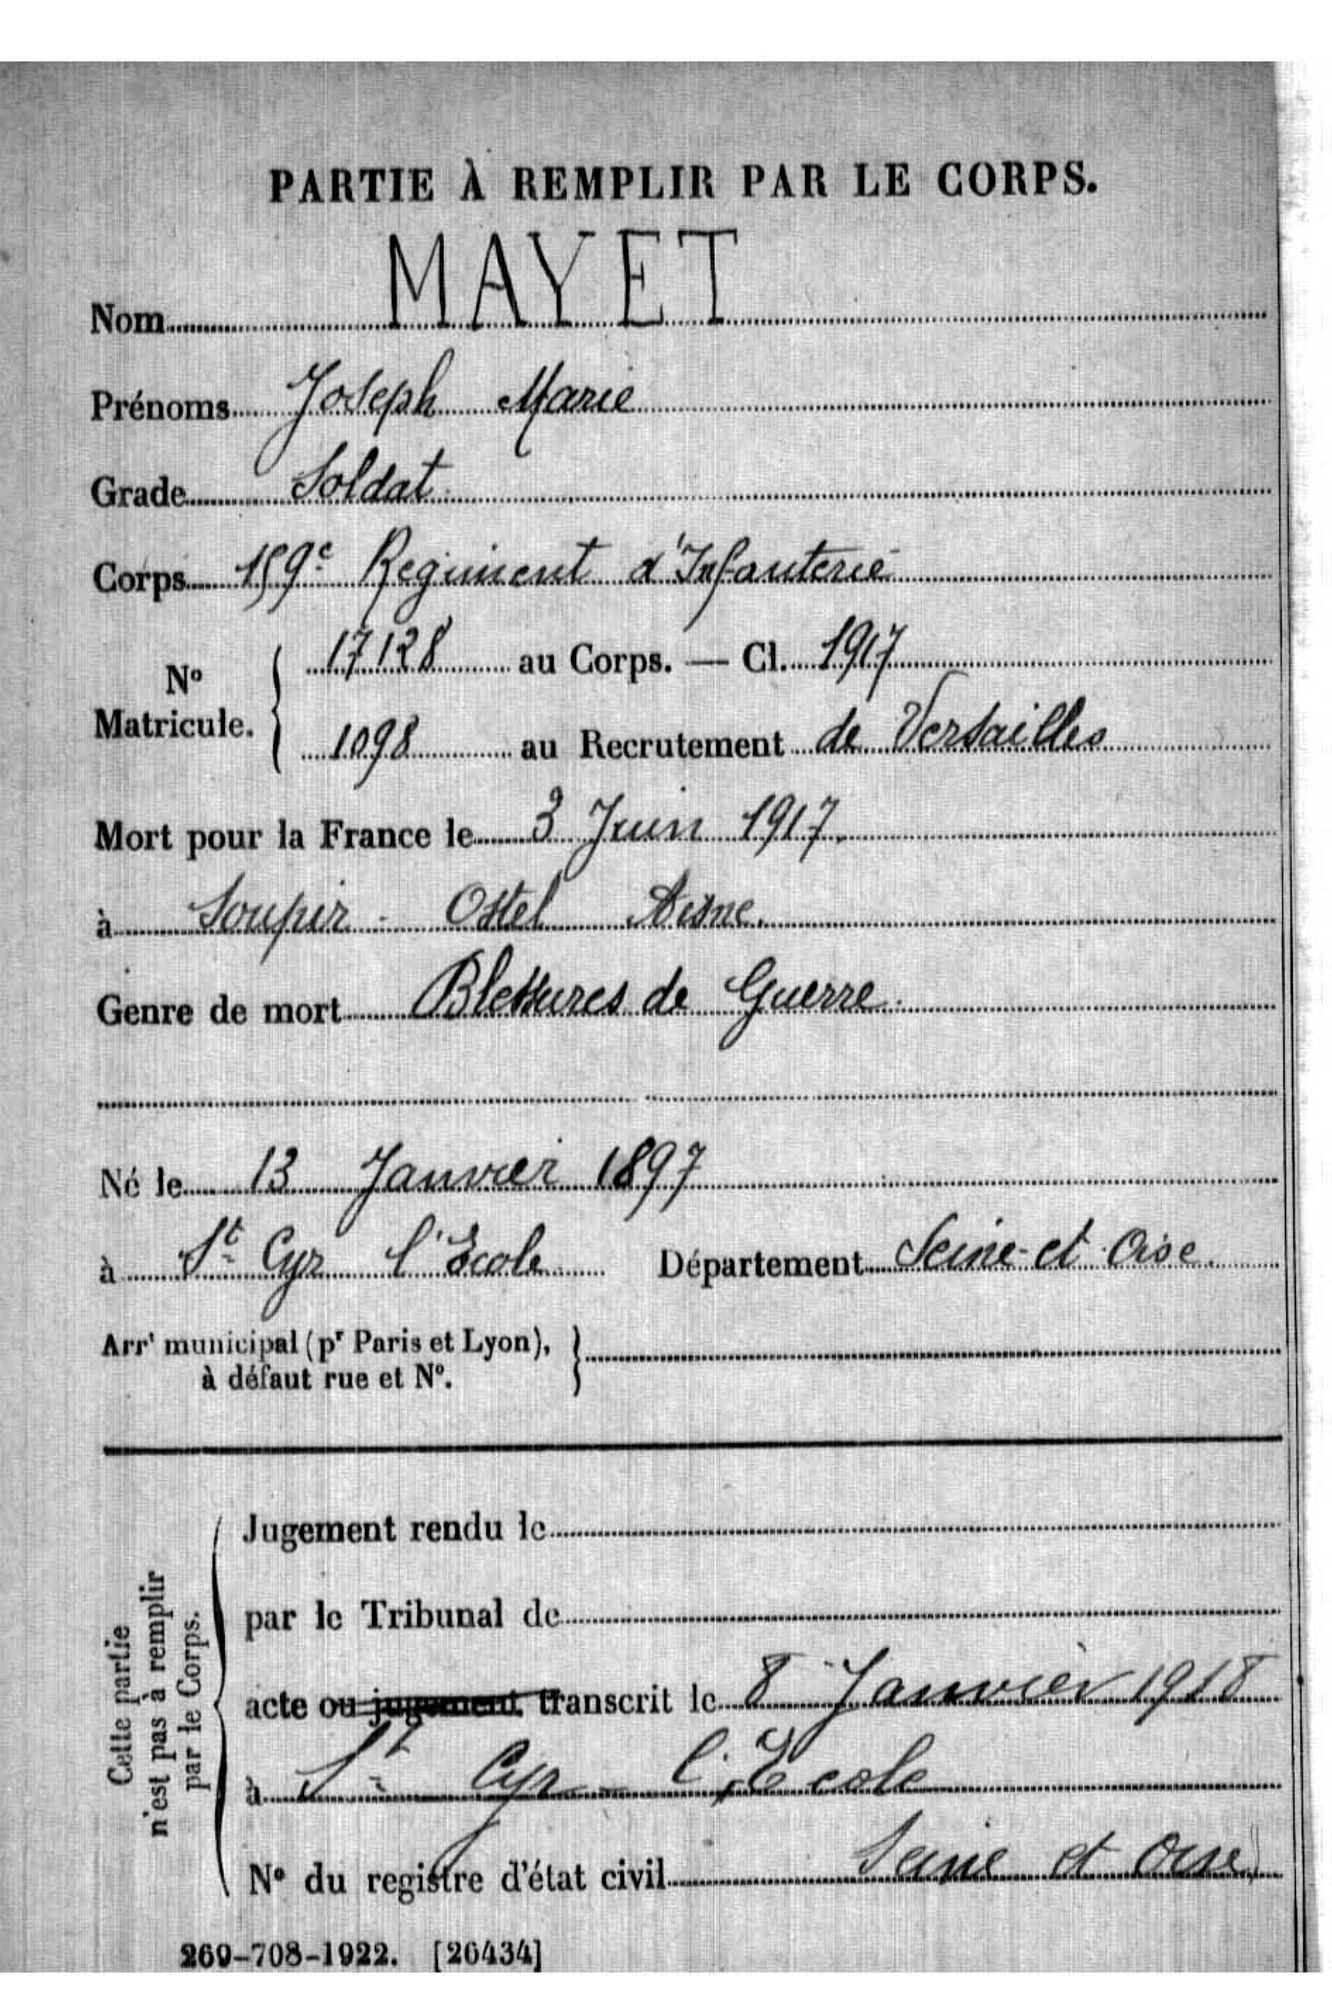 PARTIE À REMPLIR PAR LE CORPS.
Nom MAYET
Prénoms Joseph Marie
Grade Soldat
Corps 159e Regiment d'Infanterie
No Matricule. 17128 au Corps. — Cl. 1917
1098 au Recrutement de Versailles
Mort pour la France le 3 Juin 1917.
à Soupir - Ostel Aisne.
Genre de mort Blessures de Guerre.
Né le 13 Janvier 1897
à St Cyr l'Ecole Département Seine-et-Oise.
Arrt municipal (pr Paris et Lyon),
à défaut rue et No.
Cette partie
n'est pas à remplir
par le Corps.
Jugement rendu le
par le Tribunal de
acte ou jugement transcrit le 8 Janvier 1918
à St Cyr - l'Ecole
No du registre d'état civil Seine et Oise
269-708-1922. [26434]